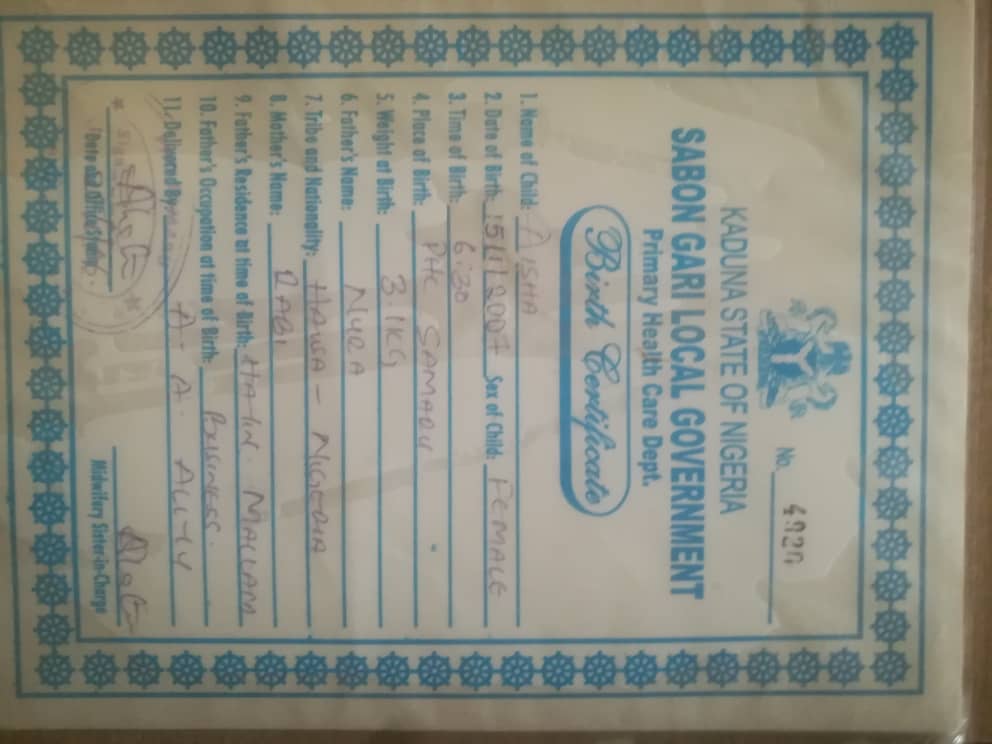 No. 4920
KADUNA STATE OF NIGERIA
SABON GARI LOCAL GOVERNMENT
Primary Health Care Dept.
Birth Certificate
1. Name of Child: AISHA
2. Date of Birth: 15/1/2007 Sex of Child: FEMALE
3. Time of Birth: 6:30
4. Place of Birth: PHC SAMARU
5. Weight at Birth: 3.1KG
6. Father's Name: NURA
7. Tribe and Nationality: HAUSA - NIGERIA
8. Mother's Name: RABI
9. Father's Residence at time of Birth: MALLAM
10. Father's Occupation at time of Birth: BUSINESS.
11. Delivered By: A. A.
Midwifery Sister-in-Charge